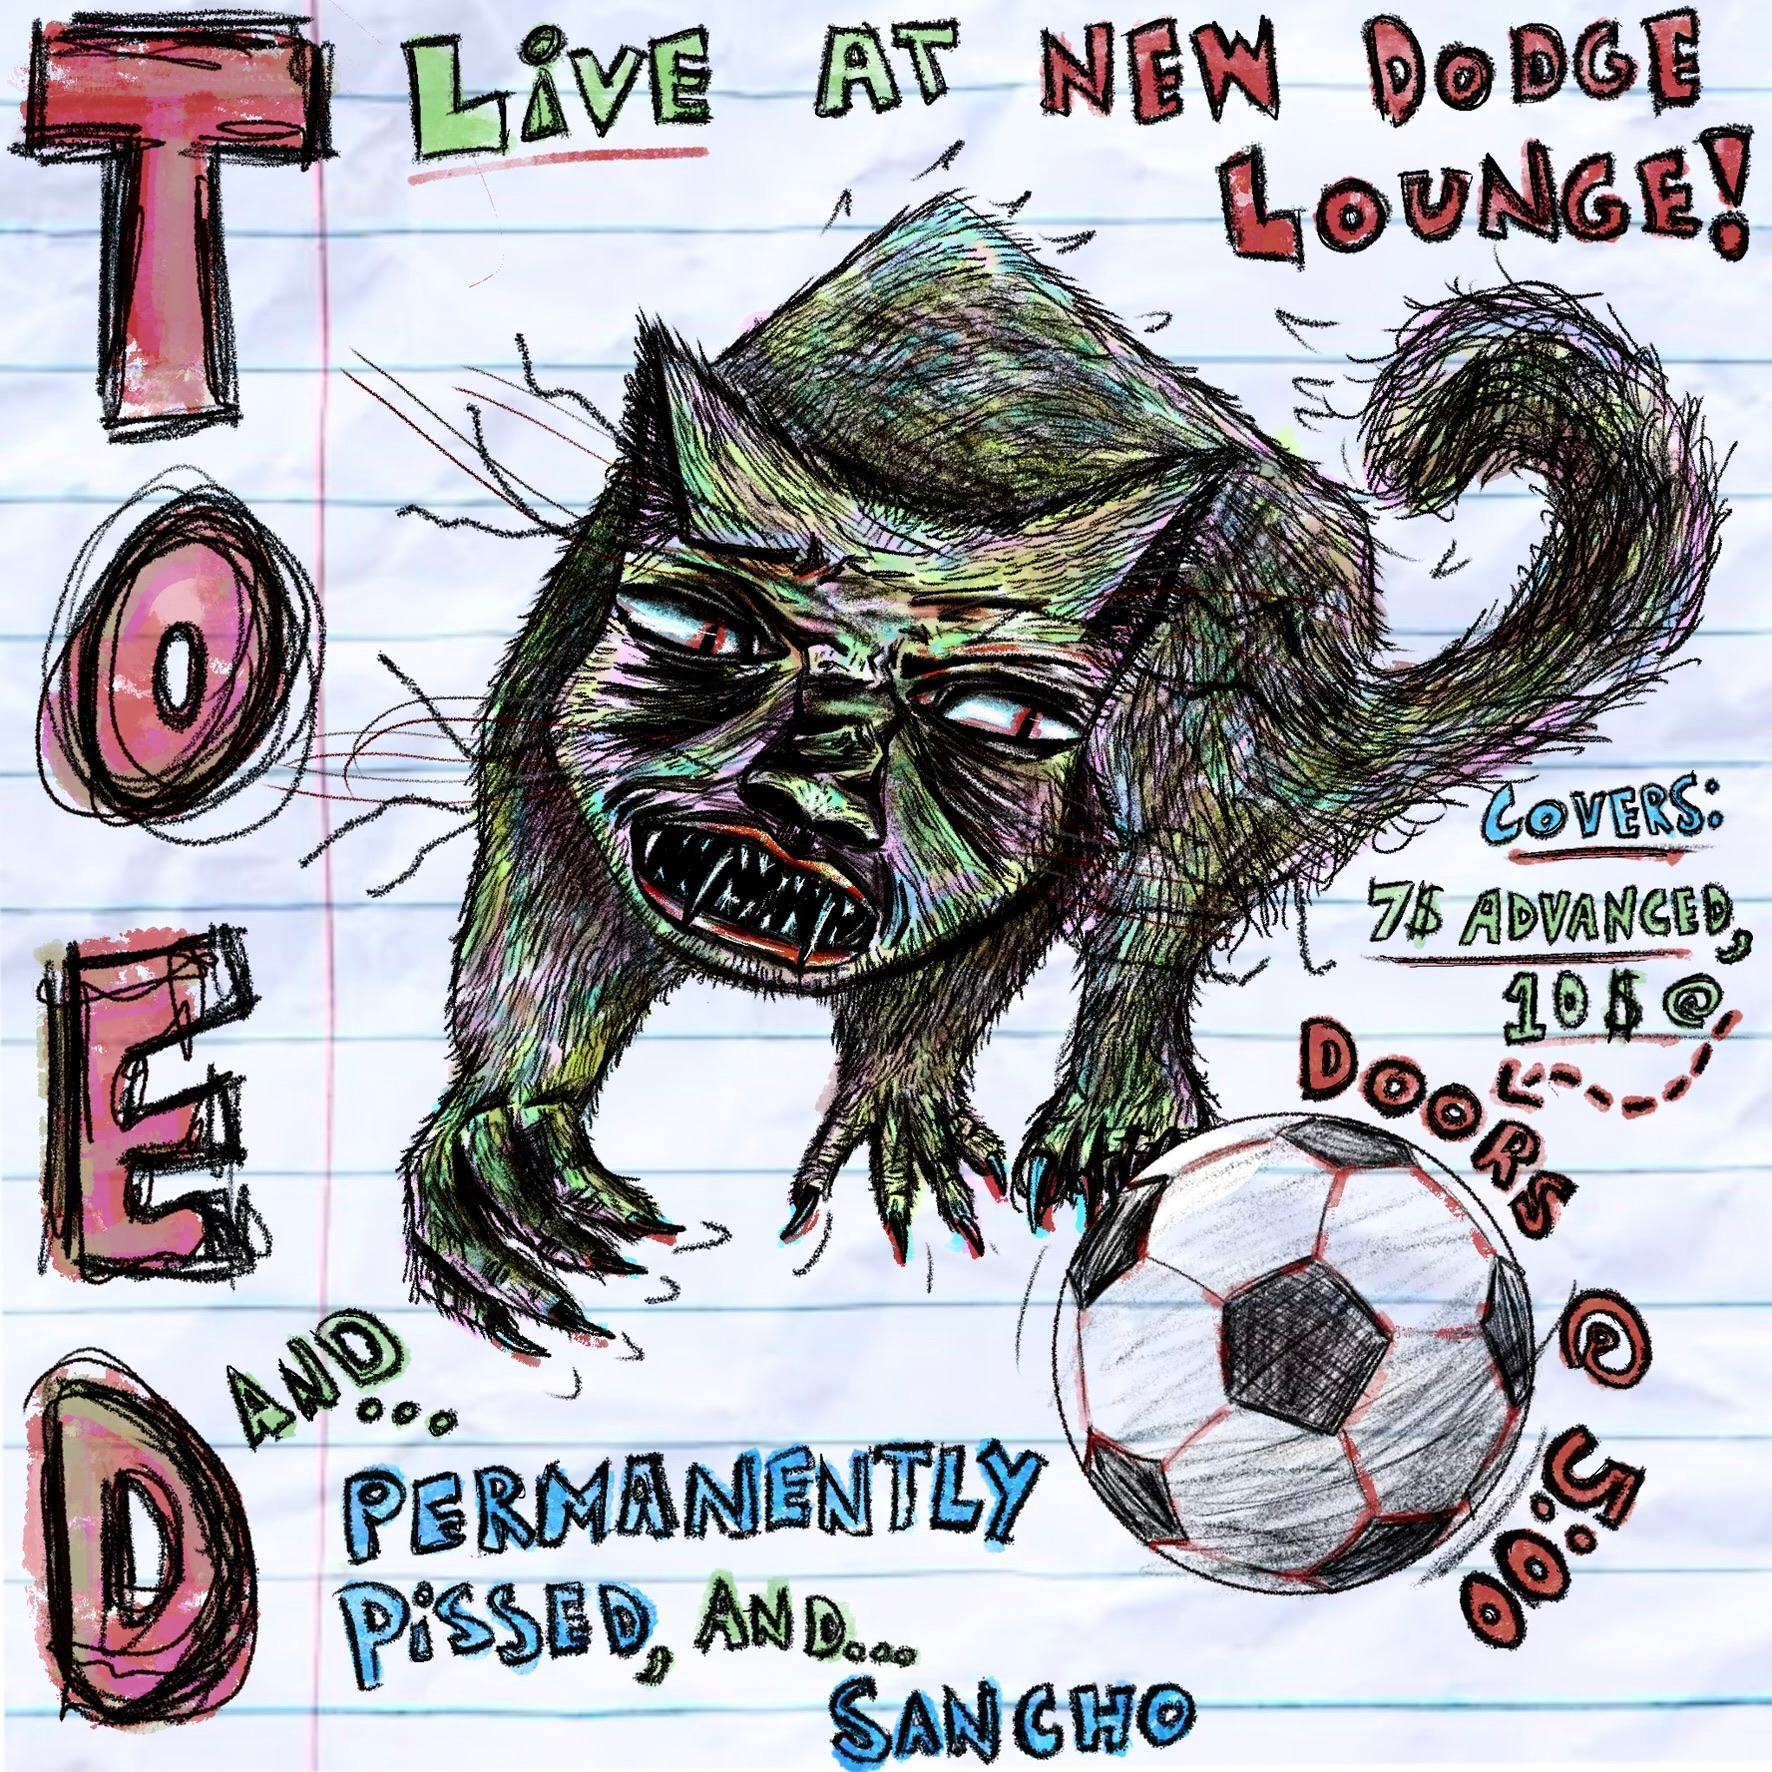 TOED
LiVE AT NEW DODGE
LOUNGE!
COVERS:
7$ ADVANCED,
10$ @
DOORS @ 5:00
AND...
PERMANENTLY
PiSSED, AND...
SANCHO